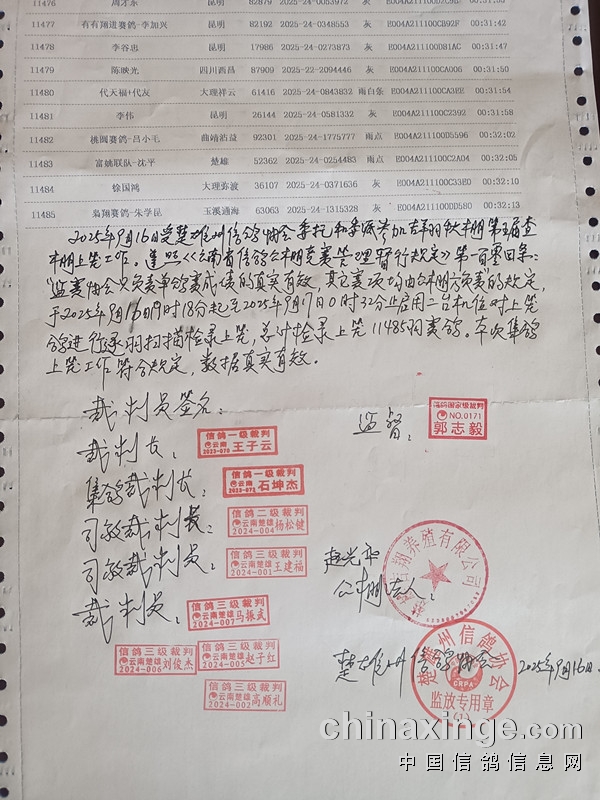 11476 周才东 昆明 82879 2025-24-0053972 灰
11477 有有翔道赛鸽-李加兴 昆明 82192 2025-24-0348553 灰 E004A211100CB92F 00:31:42
11478 李谷忠 昆明 17986 2025-24-0273873 灰 E004A211100D81AC 00:31:47
11479 陈映光 四川西昌 87909 2025-22-2094446 灰 E004A211100CA006 00:31:50
11480 代天福+代友 大理祥云 61416 2025-24-0843832 雨白条 00:31:54
11481 李伟 昆明 26144 2025-24-0581332 灰 E004A211100C2392 00:31:58
11482 桃园赛鸽-吕小毛 曲靖沾益 92301 2025-24-1775777 雨点 E004A211100D5596 00:32:02
11483 富姚联队-沈平 楚雄 52362 2025-24-0254483 雨点 E004A211100C2A04 00:32:05
11484 徐国鸿 大理弥渡 36107 2025-24-0371636 灰 E004A211100C33E0 00:32:10
11485 枭翔赛鸽-朱学昆 玉溪通海 63063 2025-24-1315328 灰 E004A211100DD580 00:32:13
2025年9月16日受楚雄州信鸽协会委托和委派参加吉翔公棚第五届查
棚上笼工作。遵照《云南省信鸽公棚竞赛管理暂行规定》第一百零四条:
"监赛协会只负责单鸽赛成绩的真实有效,其它赛项均由公棚方负责"的规定,
于2025年9月16日19时18分起至2025年9月17日0时32分止启用二台机位对上笼
鸽进行逐羽扫描检录上笼,总计检录上笼11485羽赛鸽。本次集鸽
上笼工作符合规定,数据真实有效。
裁判员签名:
监督:
信鸽国家级裁判
NO.0171
郭志毅
裁判长:
信鸽一级裁判
云南 王子云
2023-070
集鸽裁判长:
信鸽一级裁判
云南 石坤杰
2023-071
司放裁判长:
信鸽二级裁判
云南楚雄 杨松健
2024-004
司放裁判员:
信鸽三级裁判
云南楚雄 王建福
2024-001
赵光和
公棚法人:
翔养殖有限公司
裁判员:
信鸽三级裁判
云南楚雄 马振武
2024-007
信鸽三级裁判
云南楚雄 刘俊杰
2024-006
信鸽三级裁判
云南楚雄 赵子红
2024-005
信鸽三级裁判
云南楚雄 高顺礼
2024-002
楚雄州信鸽协会
2025年9月16日.
楚雄州信鸽协会
CRPA
监放专用章
(1)
chinaxinge.com
中国信鸽信息网